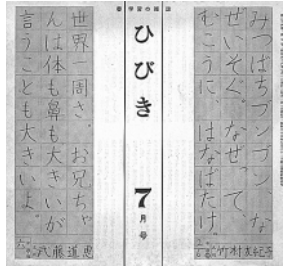 学習の雑誌
みつばちブンブン な
ぜいそぐ。なぜって、
むこうに、はなばたけ。
竹村友紀子
ひびき
7月号
世界一周さ。お兄ちゃ
んは体も鼻も大きいが
言うことも大きいよ。
武藤道恵